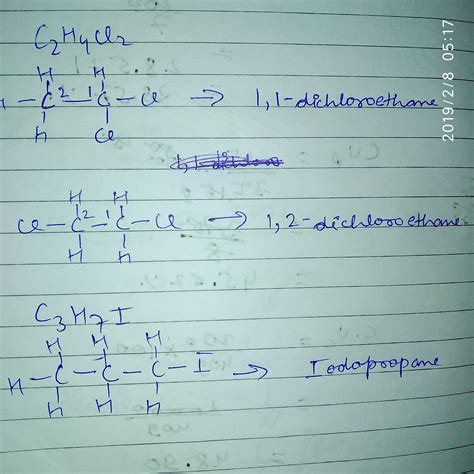 C2H4Cl2
H H
H - C2 - 1C - Cl → 1,1-dichloroethane
H Cl
H H
Cl - C2 - 1C - Cl → 1,2-dichloroethane
H H
C3H7I
H H H
H - C - C - C - I → Iodopropane
H H H
2019/2/8 05:17